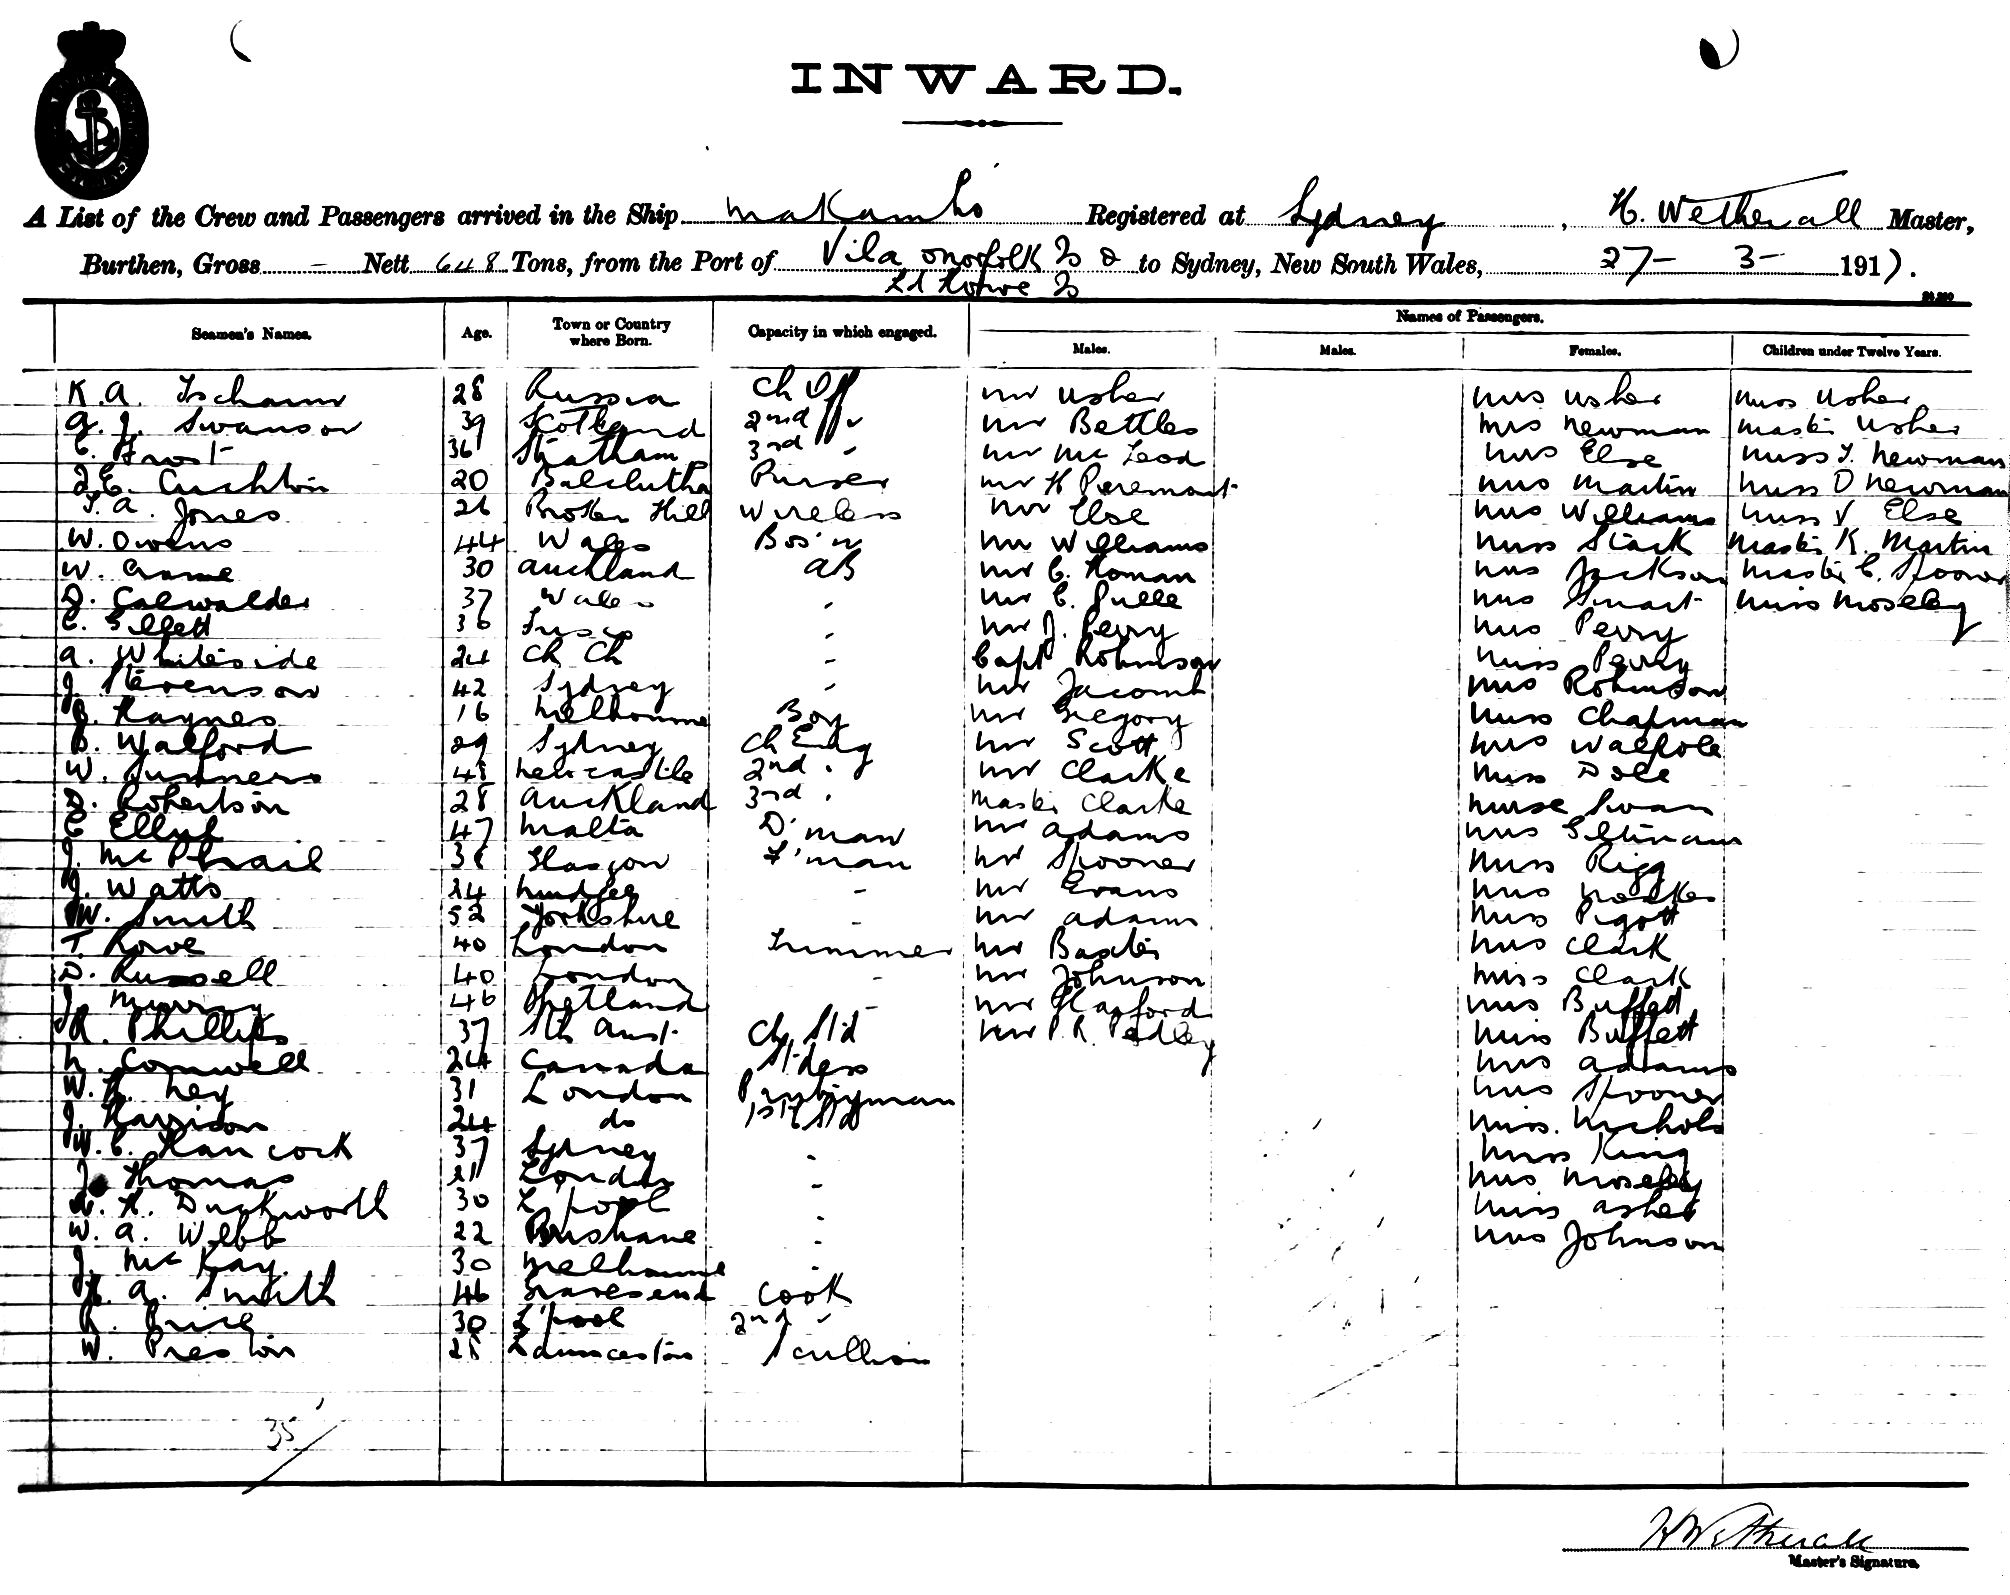 INWARD.
A List of the Crew and Passengers arrived in the Ship Makambo Registered at Sydney, H. Wetherall Master,
Burthen, Gross - Nett 648 Tons, from the Port of Vila Norfolk Is & to Sydney, New South Wales, 27- 3- 1917.
Ld Howe Is
Names of Passengers.
Seamen's Names. Age. Town or Country where Born. Capacity in which engaged. Males. Males. Females. Children under Twelve Years.
K. A. 28 Russia Ch Off Mr Usher Mrs Usher Miss Usher
G. J. Swanson 39 Scotland 2nd Mr Bettles Mrs Newman Master Usher
C. Frost 36 3rd " Mr Mc Leod Mrs Else Miss T. Newman
20 Balclutha Purser Mr H Peremont Mrs Martin Miss D Newman
T. A. Jones 26 Broken Hill Wireless Mr Else Mrs Williams Miss V Else
W. Owens 44 Wales Bos'n Mr Williams Miss Stack Master K. Martin
W. Crame 30 Auckland AB Mr C. Homan Mrs Jackson Master C. Spooner
D. Cadwalder 37 Wales " Mr C. Mrs Smart Miss Moseley
36 " Mr J. Perry Mrs Perry
A. Whiteside 24 Ch Ch " Capt Robinson Miss Perry
J. Stevenson 42 Sydney " Mr Jacomb Mrs Robinson
Haynes 16 Melbourne Boy Mr Gregory Miss Chapman
Walford 29 Sydney Ch Eng Mr Scott Mrs Walpole
W. 48 Newcastle 2nd " Mr Clarke Miss Dole
D. Robertson 28 Auckland 3rd " Master Clarke Nurse Swan
C 47 Malta D'man Mr Adams Mrs
J. Mc Phail 38 Glasgow F'man Mr Spooner Miss Rigg
J. Watts 24 Mudgee " Mr Evans Mrs
W. Smith 52 Yorkshire " Mr Adams Miss Pigott
T. Rowe 40 London Trimmer Mr Baxter Mrs Clark
D. Russell 40 London " Mr Johnson Miss Clark
J. Murray 46 Shetland Mr Mrs Buffett
R. Phillips 37 Sth Aust. Ch Std Mr P. R. Pedley Miss Buffett
Cornwell 24 Canada St'dess Mrs Adams
W. H. Ney 31 London Pantryman Mrs Spooner
J. Harrison 24 do Std Miss. Nichols
W. C. Hancock 37 Sydney " Miss King
J. Thomas 21 London " Mrs Moseley
H. Duckworth 30 L'pool " Miss Asher
W. A. Webb 22 Brisbane " Mrs Johnson
J. Mc Kay. 30 Melbourne "
A. Smith 46 Gravesend Cook
Price 30 L'pool 2nd "
W. Preston 28 Launceston Scullion
35
H Wetherall
Master's Signature.